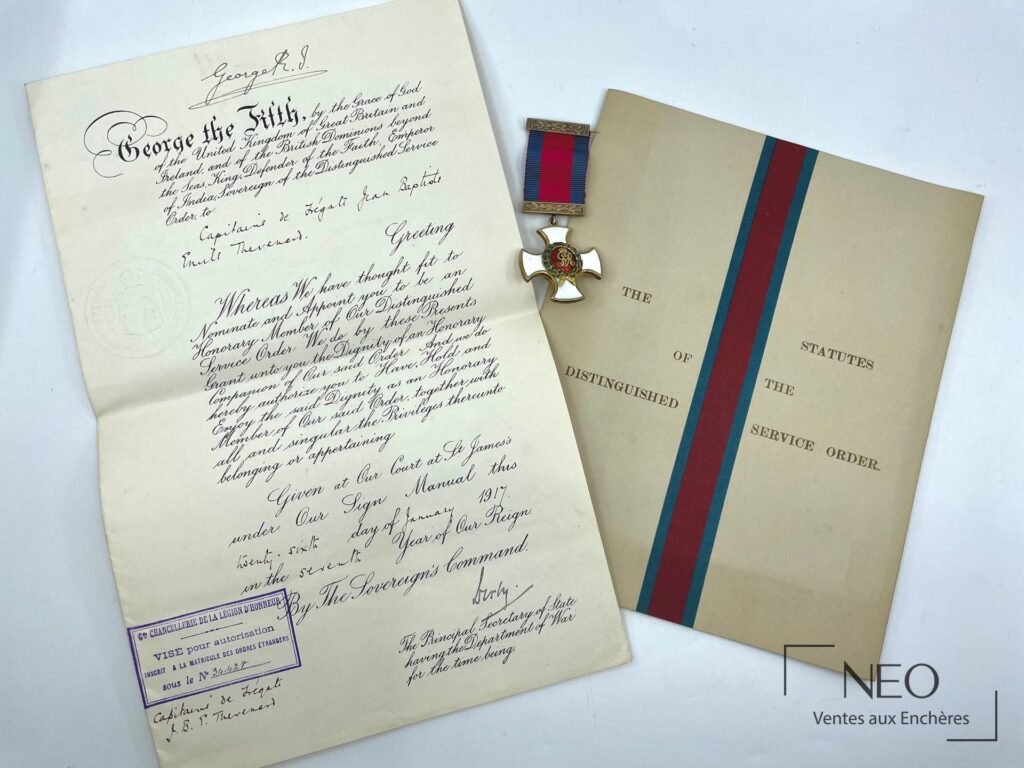 George R. I.
George the Fifth, by the Grace of God
of the United Kingdom of Great Britain and
Ireland, and of the British Dominions beyond
the Seas, King, Defender of the Faith, Emperor
of India, Sovereign of the Distinguished Service
Order, to
Capitaine de Frégate Jean Baptiste
Emile Thevenard.
Greeting
Whereas We have thought fit to
Nominate and Appoint you to be an
Honorary Member of Our Distinguished
Service Order. We do by these Presents
Grant unto you the Dignity of an Honorary
Companion of Our said Order. And we do
hereby authorize you to Have, Hold and
Enjoy the said Dignity as an Honorary
Member of Our said Order, together with
all and singular the Privileges thereunto
belonging or appertaining
Given at Our Court at St James's
under Our Sign Manual this
twenty-sixth day of January 1917.
in the seventh Year of Our Reign.
By The Sovereign's Command.
Derby
The Principal Secretary of State
having the Department of War
for the time being.
Gde CHANCELLERIE DE LA LÉGION D'HONNEUR
VISÉ pour autorisation
INSCRIT A LA MATRICULE DES ORDRES ÉTRANGERS
sous le No 34.427
Capitaine de Frégate
J. B. E. Thevenard
THE STATUTES
OF THE
DISTINGUISHED SERVICE ORDER.
NEO
Ventes aux Enchères